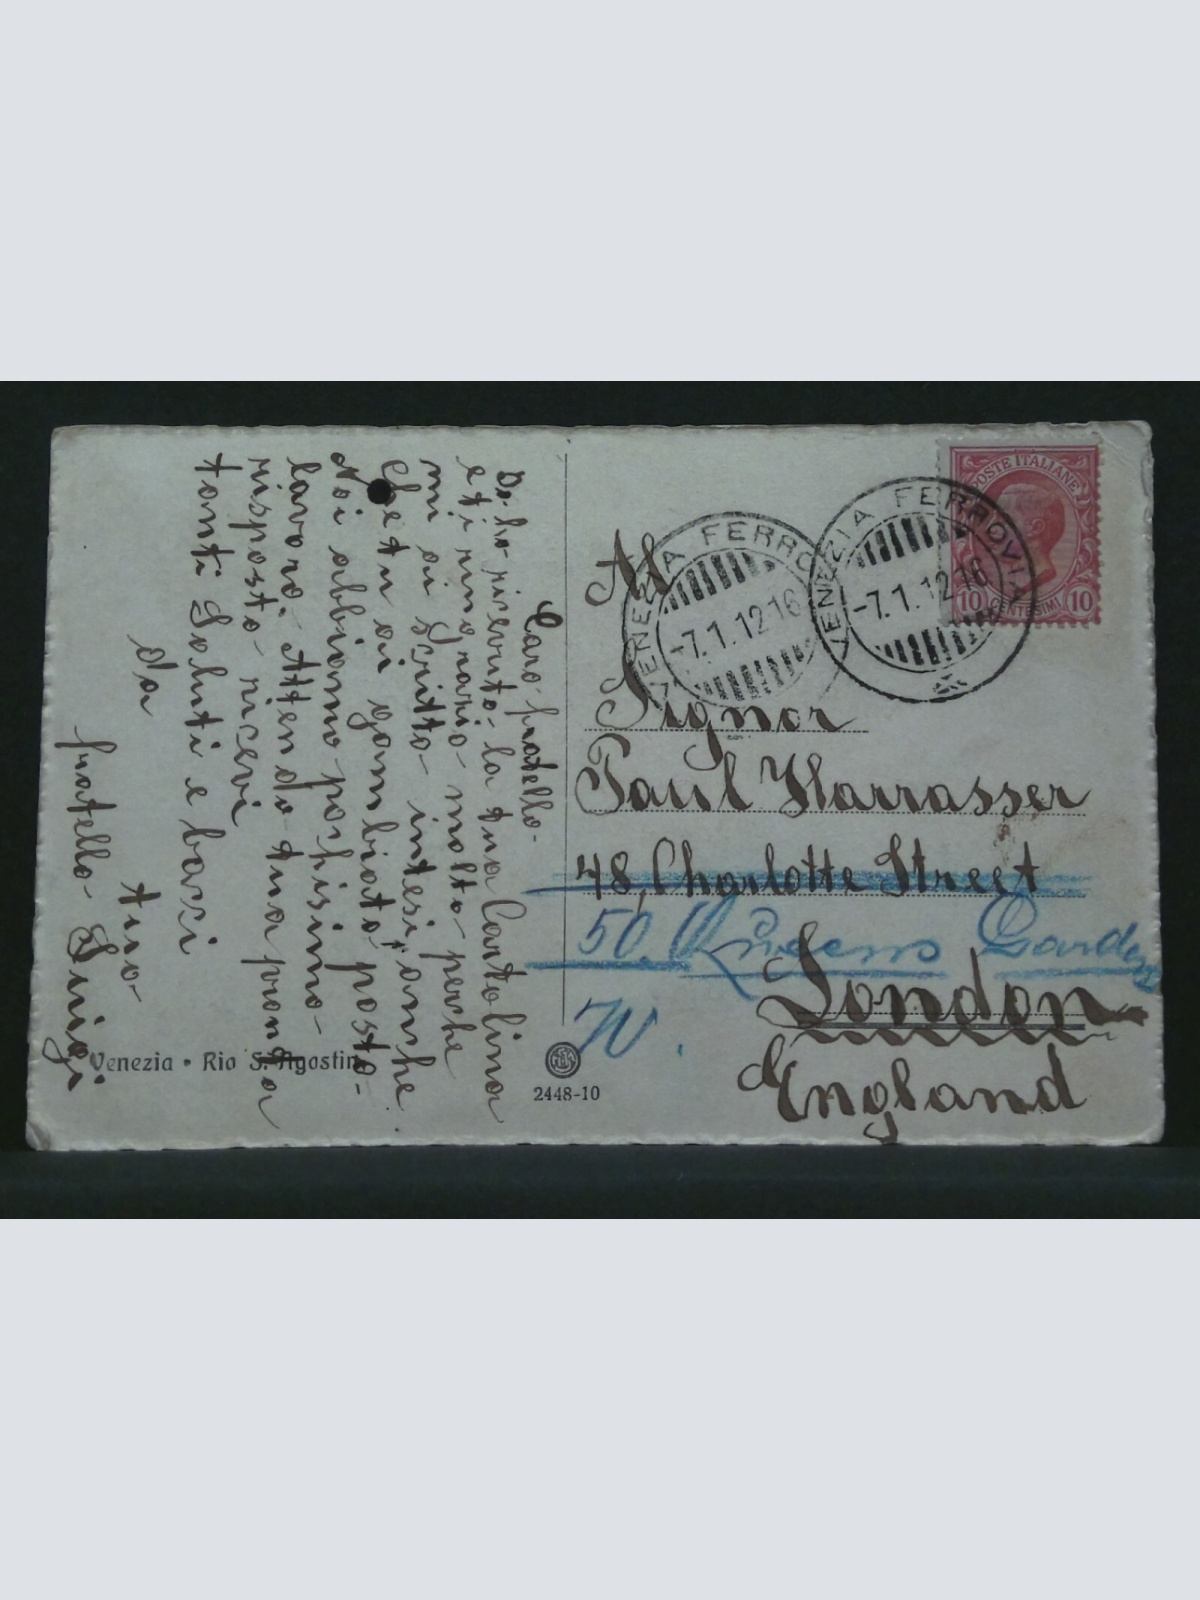 Caro fratello.
Do. ho ricevuto la tua Cartolina
e ti ringrazio molto perche
mi ai Scritto intesi anche
Che tu ai gambiato posto.
Noi abbiamo pochisimo
lavoro. Attendo tua pronta
risposta ricevi
tanti Saluti e baci
da tuo
fratello Luigi
Venezia • Rio S. Agostin
2448-10
POSTE ITALIANE
10 CENTESIMI 10
VENEZIA FERROVIA
-7.1.12 16
VENEZIA FERRO
-7.1.12 16
Al
Signor
Paul Harrasser
48, Charlotte Street
50. Queens Gardens
W.
London
England